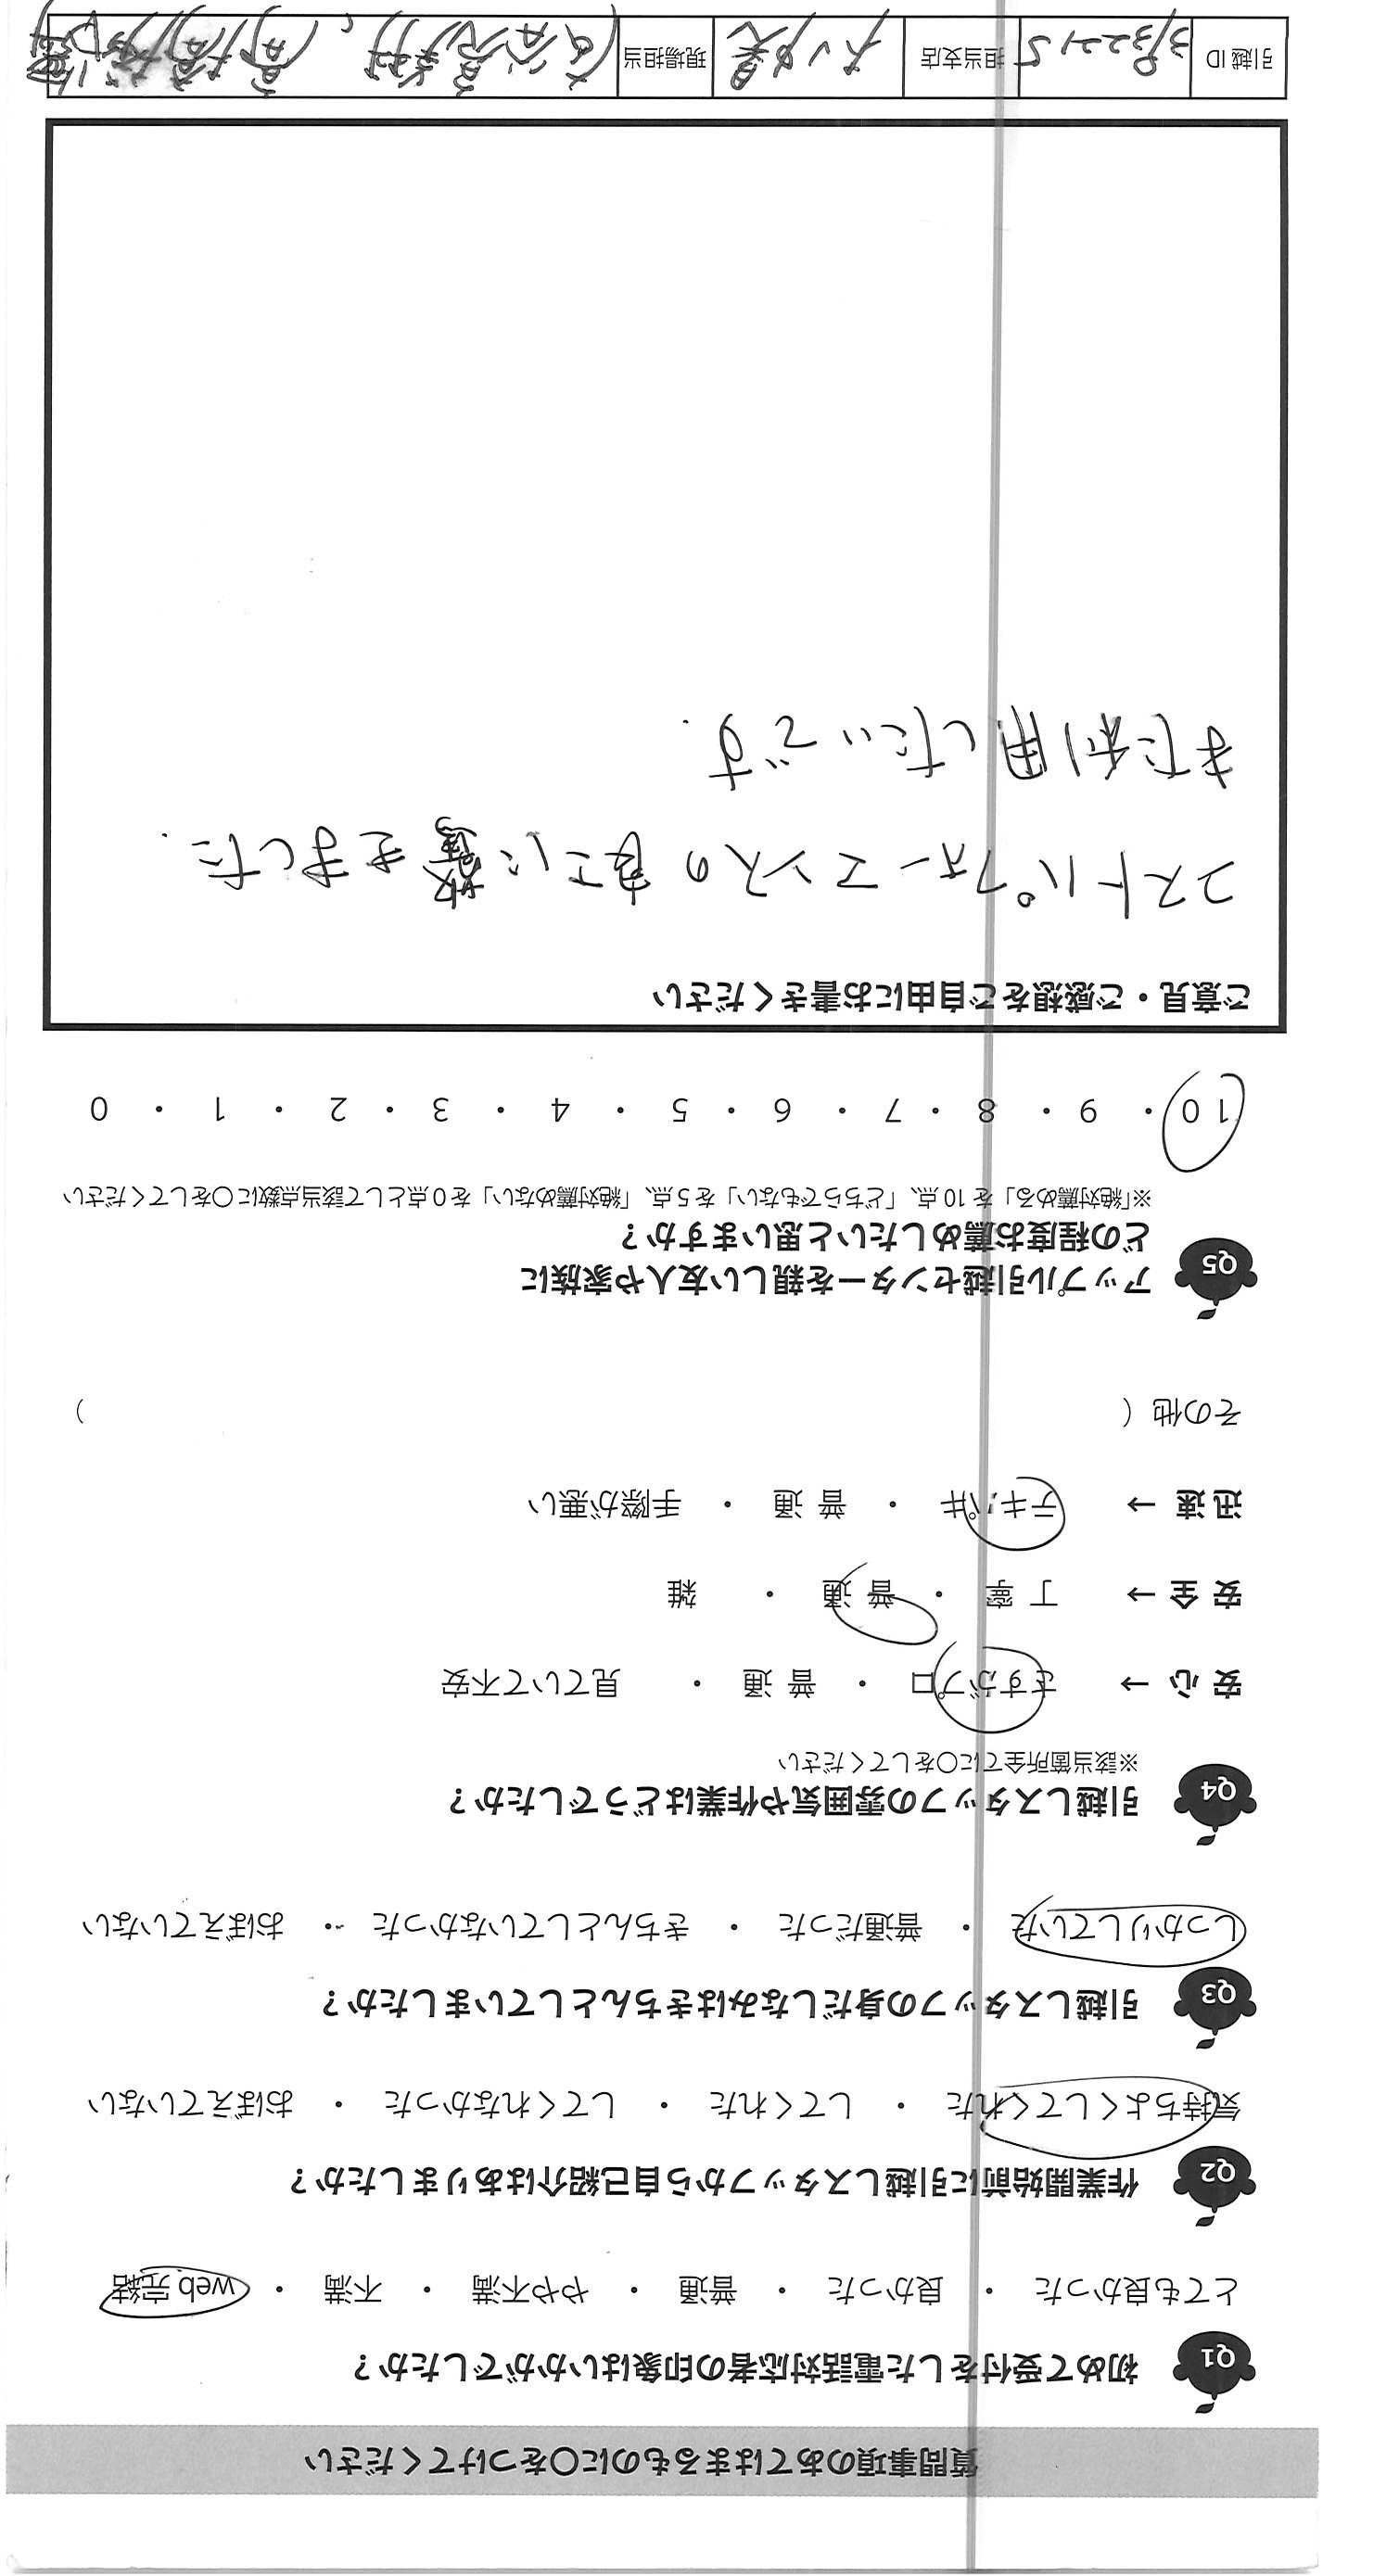 質問事項のあてはまるものに〇をつけてください
Q1 初めて受付をした電話対応者の印象はいかがでしたか？
とても良かった ・ 良かった ・ 普通 ・ やや不満 ・ 不満 ・ web 完結
Q2 作業開始前に引越しスタッフから自己紹介はありましたか？
気持ちよくしてくれた ・ してくれた ・ してくれなかった ・ おぼえていない
Q3 引越しスタッフの身だしなみはきちんとしていましたか？
しっかりしていた ・ 普通だった ・ きちんとしていなかった ・ おぼえていない
Q4 引越しスタッフの雰囲気や作業はどうでしたか？
※該当箇所全てに〇をしてください
安心 → さすがプロ ・ 普通 ・ 見ていて不安
安全 → 丁寧 ・ 普通 ・ 雑
迅速 → テキパキ ・ 普通 ・ 手際が悪い
その他（ ）
Q5 アップル引越センターを親しい友人や家族に
どの程度お薦めしたいと思いますか？
※「絶対薦める」を 10 点、「どちらでもない」を 5 点、「絶対薦めない」を 0 点として該当点数に〇をしてください
10 ・ 9 ・ 8 ・ 7 ・ 6 ・ 5 ・ 4 ・ 3 ・ 2 ・ 1 ・ 0
ご意見・ご感想をご自由にお書きください
コストパフォーマンスの良さに驚きました.
また利用したいです.
引越 ID 担当支店 現場担当